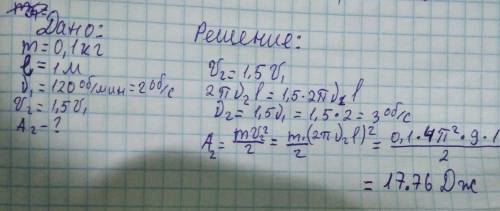 Дано:
m = 0,1 кг
l = 1 м
ν₁ = 120 об/мин = 2 об/с
υ₂ = 1,5 υ₁
A₂ - ?
Решение:
υ₂ = 1,5 υ₁
2πν₂l = 1,5 · 2πν₁l
ν₂ = 1,5ν₁ = 1,5 · 2 = 3 об/с
A₂ = mυ₂²/2 = m·(2πν₂l)²/2 = 0,1 · 4π² · 9 · 1/2
= 17.76 Дж